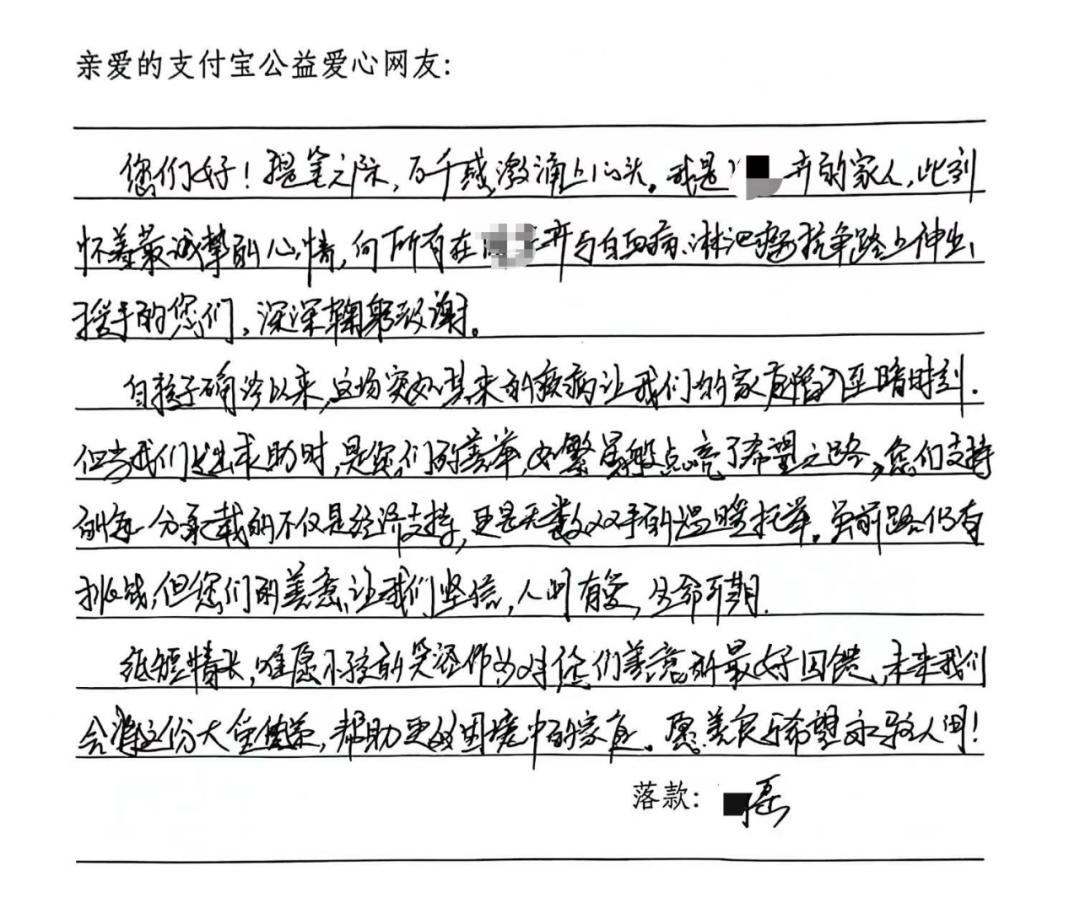 亲爱的支付宝公益爱心网友:
您们好！提笔之际，百千感激涌上心头。我是 弈的家人，此刻
怀着最诚挚的心情，向所有在 弈与白血病、淋巴瘤抗争路上伸出
援手的您们，深深鞠躬致谢。
自孩子确诊以来，这场突如其来的疾病让我们的家庭陷入至暗时刻.
但当我们发出求助时，是您们的善举，如繁星般点亮了希望之路，您们支持
的每一分承载的不仅是经济支持，更是无数双手的温暖托举。虽前路仍有
挑战，但您们的善意，让我们坚信，人间有爱，生命可期.
纸短情长，唯愿小孩的笑容作为对您们善意的最好回馈，未来我们
会将这份大爱传递，帮助更多困境中的家庭。愿美良与希望永驻人间！
落款: 磊